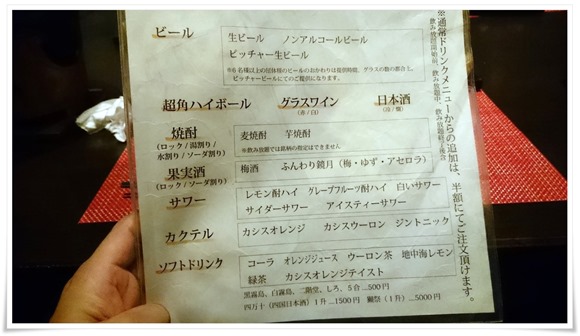 ビール
生ビール　ノンアルコールビール
ピッチャー生ビール
※6名様以上の団体様のビールのおかわりは提供時間、グラスの数の都合上、
ピッチャービールにてのご提供になります。
超角ハイボール
グラスワイン
(赤/白)
日本酒
(冷/燗)
焼酎
(ロック/湯割り/
水割り/ソーダ割り)
麦焼酎　芋焼酎
※飲み放題では銘柄の指定はできません
果実酒
(ロック/ソーダ割り)
梅酒　ふんわり鏡月(梅・ゆず・アセロラ)
サワー
レモン酎ハイ　グレープフルーツ酎ハイ　白いサワー
サイダーサワー　アイスティーサワー
カクテル
カシスオレンジ　カシスウーロン　ジントニック
ソフトドリンク
コーラ　オレンジジュース　ウーロン茶　地中海レモン
緑茶　カシスオレンジテイスト
黒霧島、白霧島、二階堂、しろ、5合…500円
四万十(四国日本酒)1升…1500円　獺祭(1升)…5000円
※通常ドリンクメニューからの追加は、半額にてご注文頂けます。
飲み放題開始前、飲み放題中、飲み放題終了後含